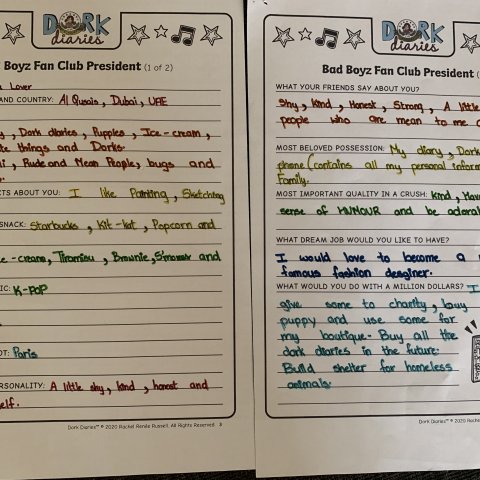 DORK
diaries
Boyz Fan Club President (1 of 2)
Lover
AND COUNTRY: Al Qusais, Dubai, UAE
, Dork diaries, Pupples, Ice-cream,
things and Dorks.
, Rude and Mean People, bugs and
ABOUT YOU: I like Painting, Sketching
SNACK: Starbucks, Kit-kat, Popcorn and
Tiramisu, Brownie, S'mores and
K-POP
Paris
A little shy, kind, honest and
Dork Diaries™ © 2020 Rachel Renée Russell. All Rights Reserved 3
DORK
diaries
Bad Boyz Fan Club President
WHAT YOUR FRIENDS SAY ABOUT YOU?
Shy, Kind, Honest, Strong, A little
people who are mean to me
MOST BELOVED POSSESSION: My diary, Dork
phone (contains all my personal
Family.
MOST IMPORTANT QUALITY IN A CRUSH: Kind,
sense of HUMOUR and be
WHAT DREAM JOB WOULD YOU LIKE TO HAVE?
I would love to become a
famous fashion desginer.
WHAT WOULD YOU DO WITH A MILLION DOLLARS? I
give some to charity, buy
puppy and use some for
my boutique. Buy all the
dork diaries in the future.
Build shelter for homeless
animals.
Dork Diaries™ © 2020 Rachel Renée